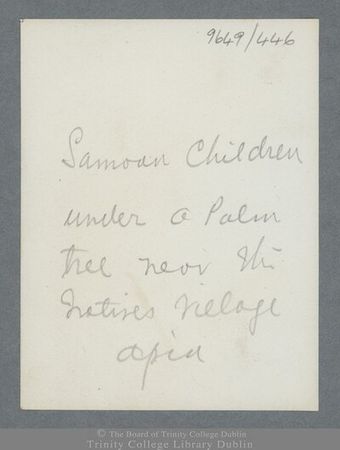 9649/446
Samoan Children
under a Palm
tree near the
Natives Village
Apia
© The Board of Trinity College Dublin
Trinity College Library Dublin